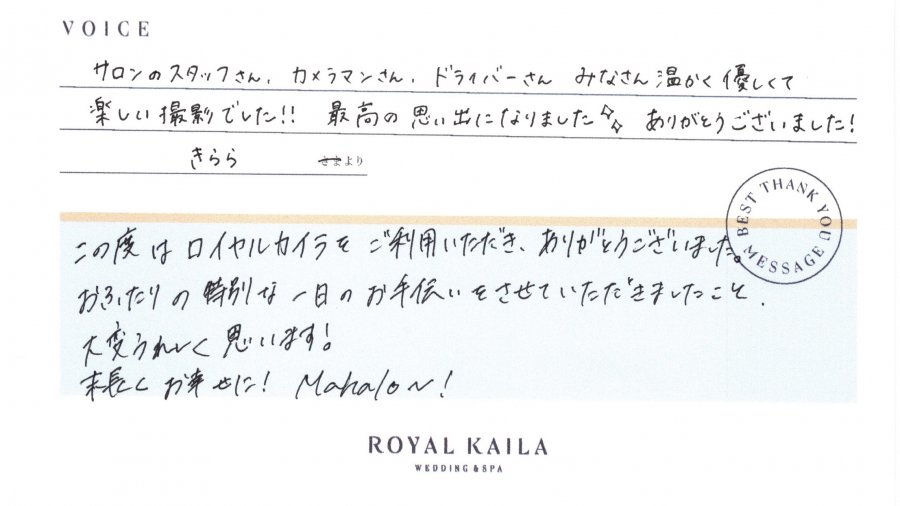 VOICE
サロンのスタッフさん、カメラマンさん、ドライバーさん みなさん温かく優しくて
楽しい撮影でした!! 最高の思い出になりました✨ ありがとうございました!
きらら さまより
BEST THANK YOU MESSAGE
この度はロイヤルカイラをご利用いただき、ありがとうございました。
おふたりの特別な一日のお手伝いをさせていただきましたこと、
大変うれしく思います!
末長くお幸せに! Mahalo~!
ROYAL KAILA
WEDDING & SPA